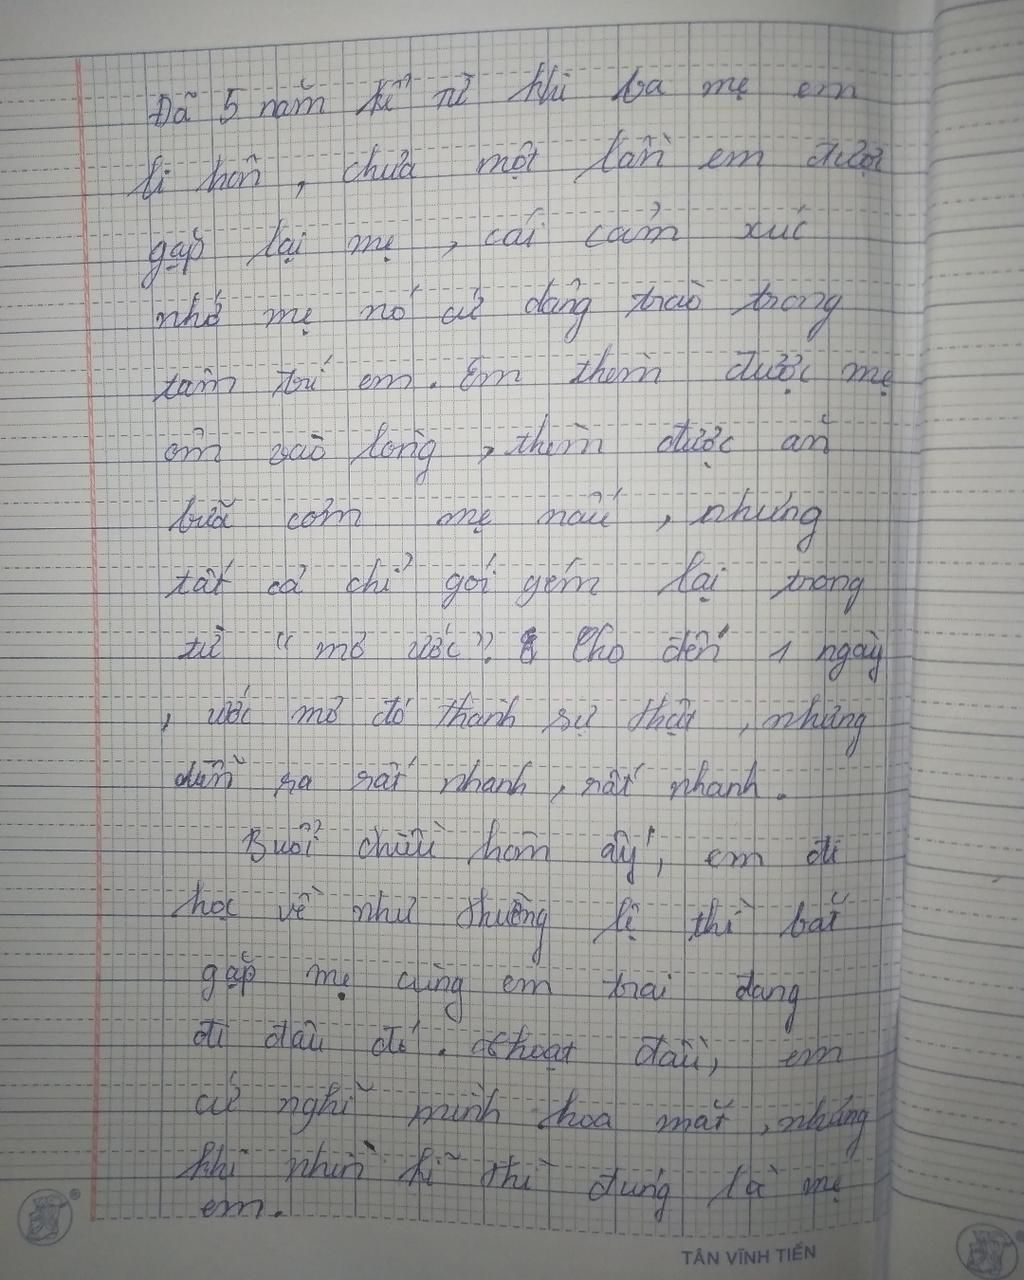 Đã 5 năm kể từ khi ba mẹ em
li hôn, chưa một lần em được
gặp lại mẹ, cái cảm xúc
nhớ mẹ nó cứ dâng trào trong
tâm trí em. Em thèm được mẹ
ôm vào lòng, thèm được ăn
bữa cơm mẹ nấu, nhưng
tất cả chỉ gói gém lại trong
từ "mơ ước". Cho đến 1 ngày
, ước mơ đó thành sự thật, nhưng
diễn ra rất nhanh, rất nhanh.
Buổi chiều hôm ấy, em đi
học về như thường lệ thì bắt
gặp mẹ cùng em trai đang
đi đâu đó. Thoạt đầu, em
cứ nghĩ mình hoa mắt, nhưng
khi nhìn kĩ thì đúng là mẹ
em.
TÂN VĨNH TIẾN